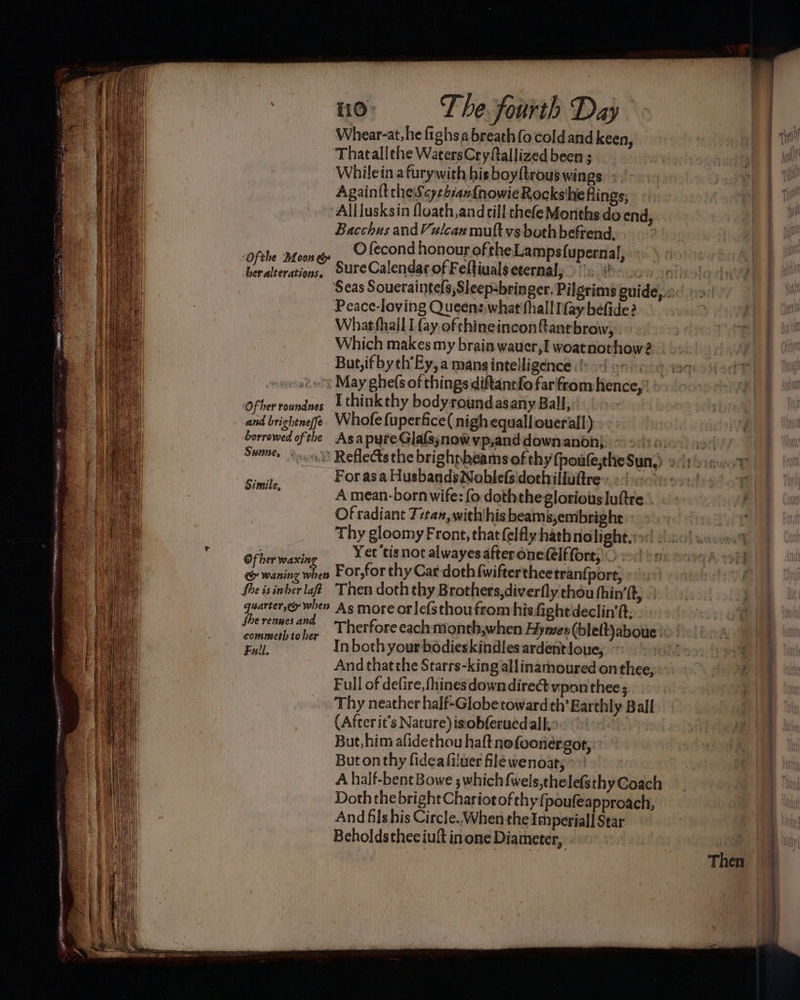 110 The fourth Day
Whear-at, he sighs a breath so cold and keen,
That all the Waters Crystallized been;
While in a fury with his boystrous wings
Against the Scythian snowie Rocks he flings,
All lusks in sloath, and till these Months do end,
Bacchus and Vulcan must vs both befrend.
Of the Moon & her alterations.
O second honour of the Lamps supernal,
Sure Calendar of Festiuals eternal,
Seas Soueraintess, Sleep-bringer, Pilgrims guide,
Peace-loving Queen: what shall I say beside?
What shall I say of thine inconstant brow,
Which makes my brain wauer, I woat not how?
But, if by th' Ey, a mans intelligence
May ghess of things distant so far from hence,
Of her roundnes and brightnesse borrowed of the Sunne,
I think thy body round as any Ball,
Whose superfice (nigh equall ouer all)
As a pure Glass, now vp, and down anon,
Reflects the bright beams of thy spouse, the Sun,
Simile,
For as a Husbands Nobless doth illustre
A mean-born wife: so doth the glorious lustre
Of radiant Titan, with his beams, embright
Thy gloomy Front, that selfly hath no light.
Of her waxing & waning when she is in her last quarter, & when she renues and commeth to her Full.
Yet 'tis not alwayes after one self sort,
For, for thy Car doth swifter thee transport,
Then doth thy Brothers, diversly thou shin'st,
As more or less thou from his sight declin'st.
Therfore each month, when Hymen (blest) aboue
In both your bodies kindles ardent loue,
And that the Starrs-king all inamoured on thee,
Full of desire, shines down direct vpon thee;
Thy neather half-Globe toward th' Earthly Ball
(After it's Nature) is obserued all.
But, him aside thou hast no sooner got,
But on thy side a siluer file we noat,
A half-bent Bowe; which swels, the less thy Coach
Doth the bright Chariot of thy spouse approach,
And fils his Circle. When the Imperiall Star
Beholds thee iust in one Diameter,
Then